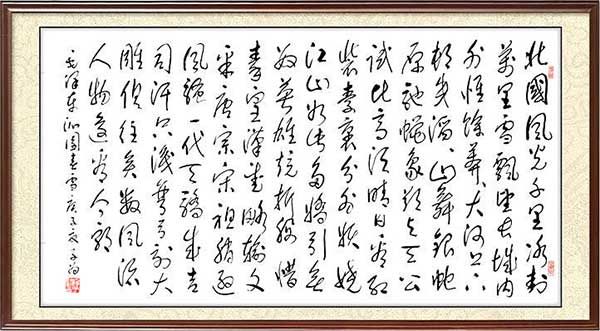 北國風光千里冰封
萬里雪飄望長城內
外惟餘莽〻大河上下
頓失滔〻山舞銀蛇
原馳蠟象欲與天公
試比高須晴日看紅
裝素裹分外妖嬈
江山如此多嬌引無
數英雄競折腰惜
秦皇漢武略輸文
采唐宗宋祖稍遜
風騷一代天驕成吉
思汗只識彎弓射大
雕俱往矣數風流
人物還看今朝
毛澤東沁園春雪